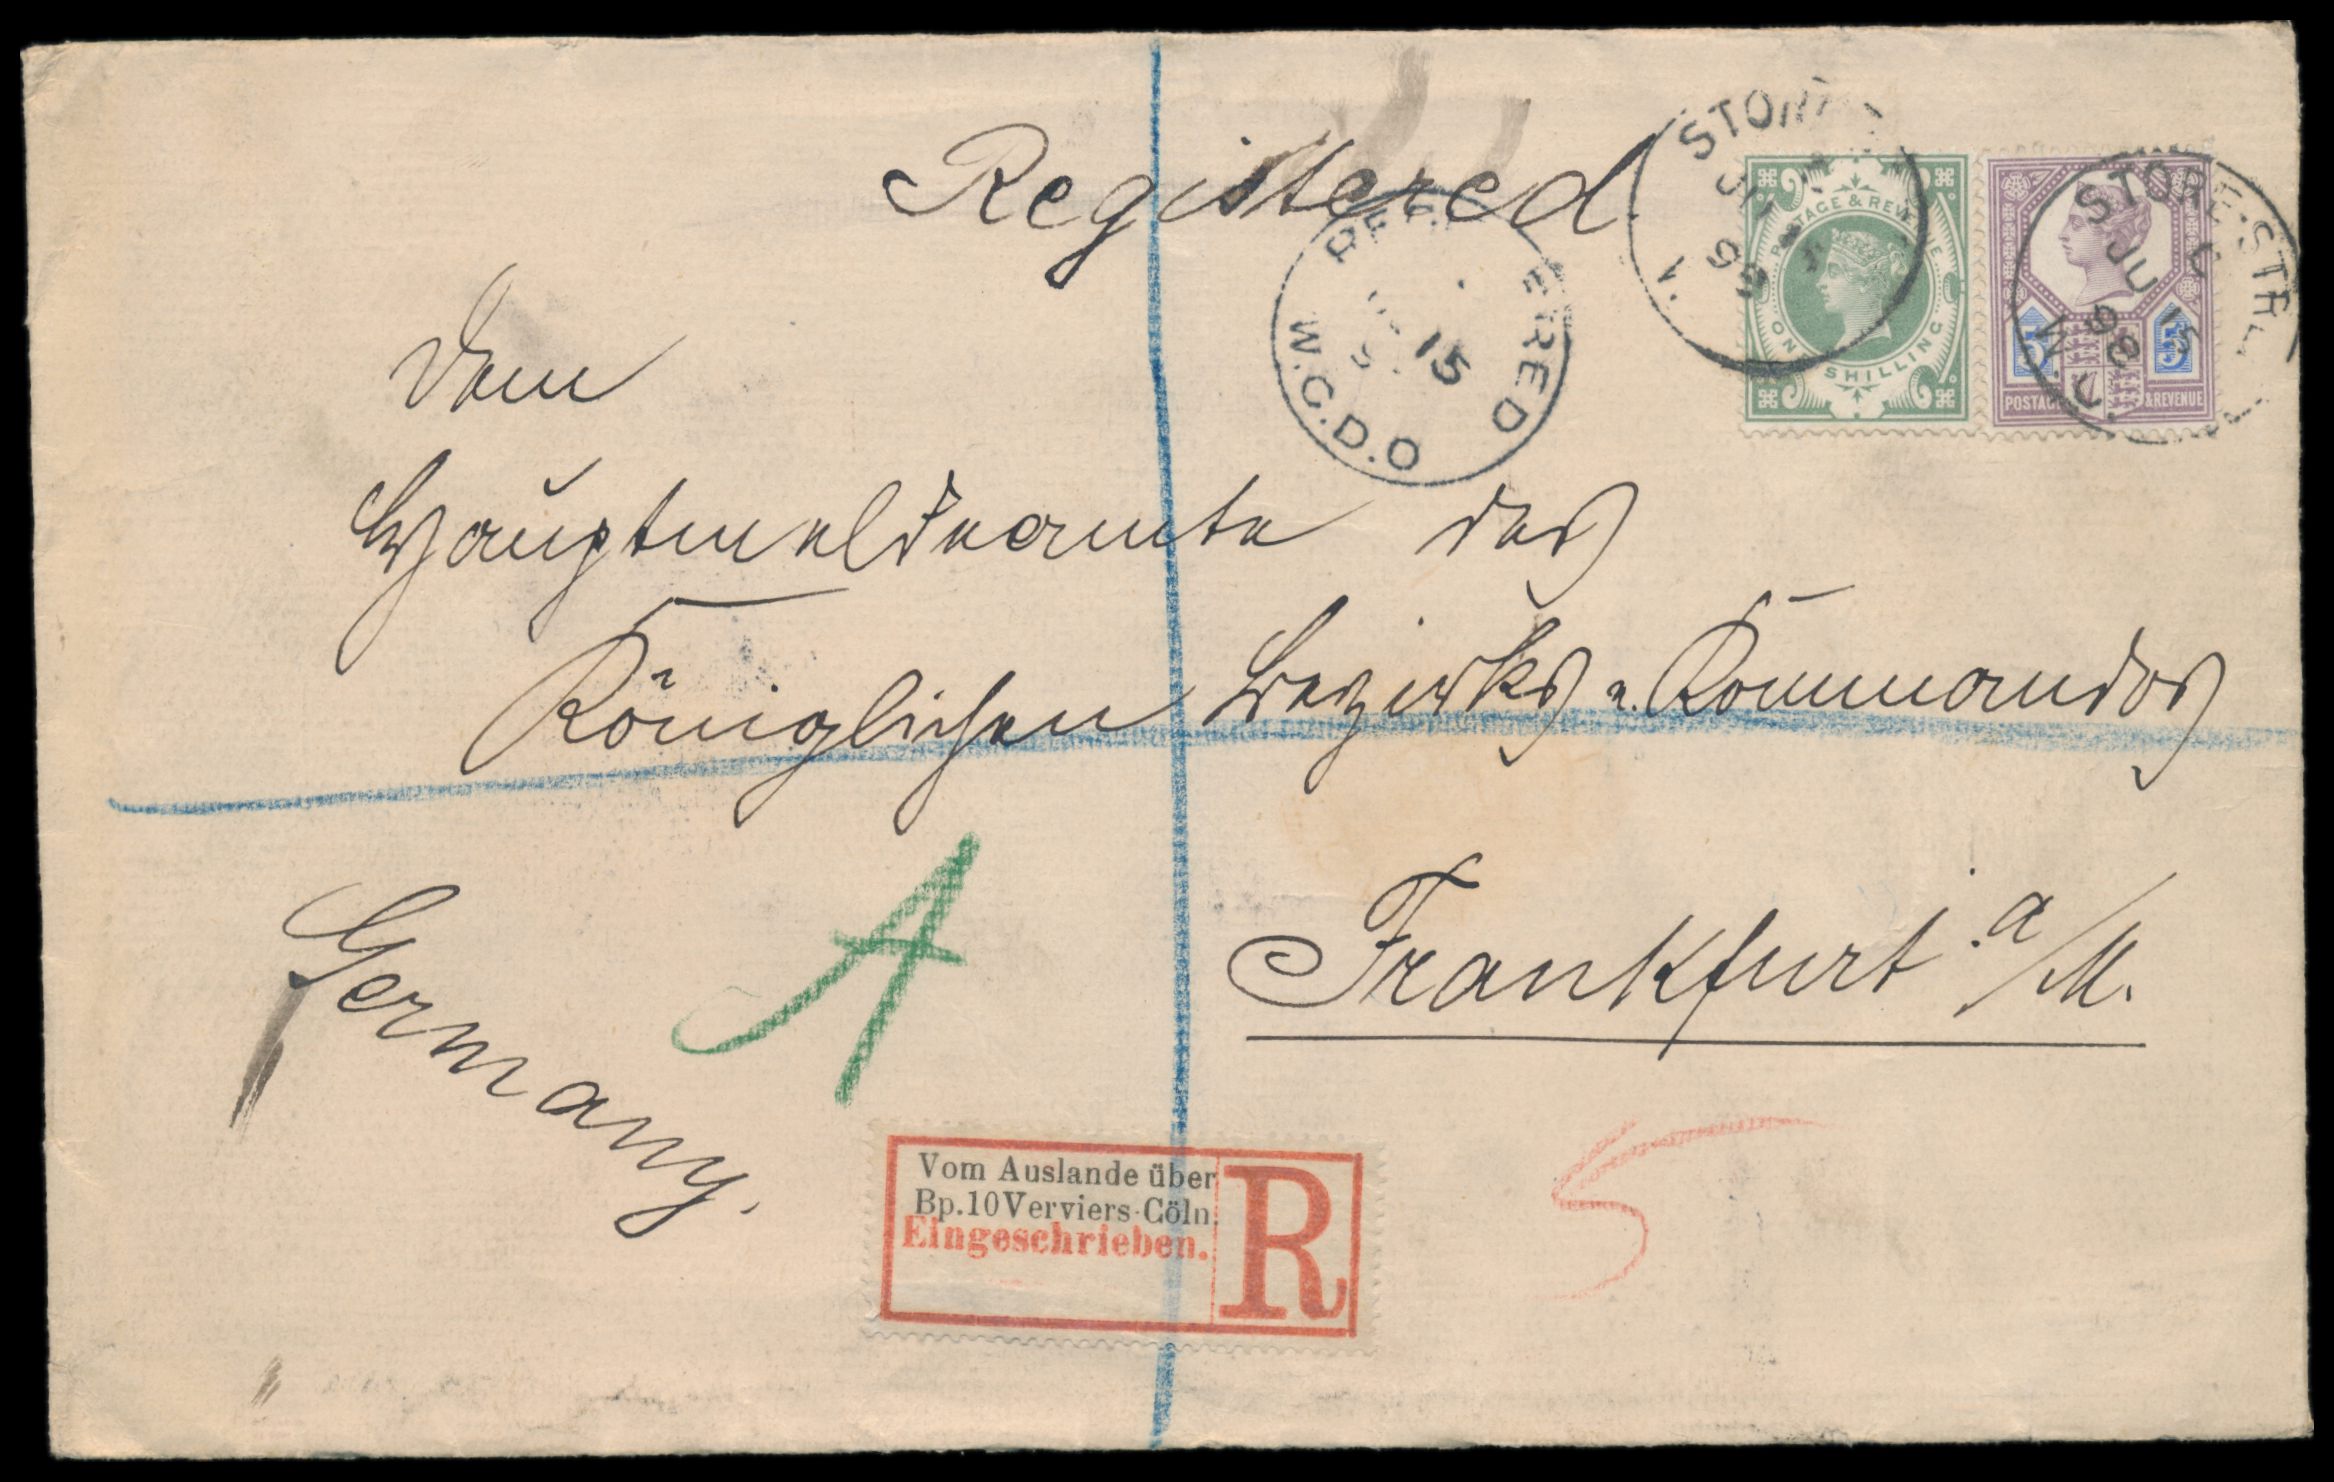 Registered.
STORE
JU
98
POSTAGE & REVENUE
ONE SHILLING
STORE·STR
C
JU 15
98
W.C.
5 5
POSTAGE & REVENUE
REGISTERED
15
W.C.D.O
Dem
Hauptmeldeamte des
Königlichen Bezirks-Kommandos
Frankfurt a/M.
Germany.
A
Vom Auslande über
Bp.10 Verviers-Cöln.
Eingeschrieben.
R
5